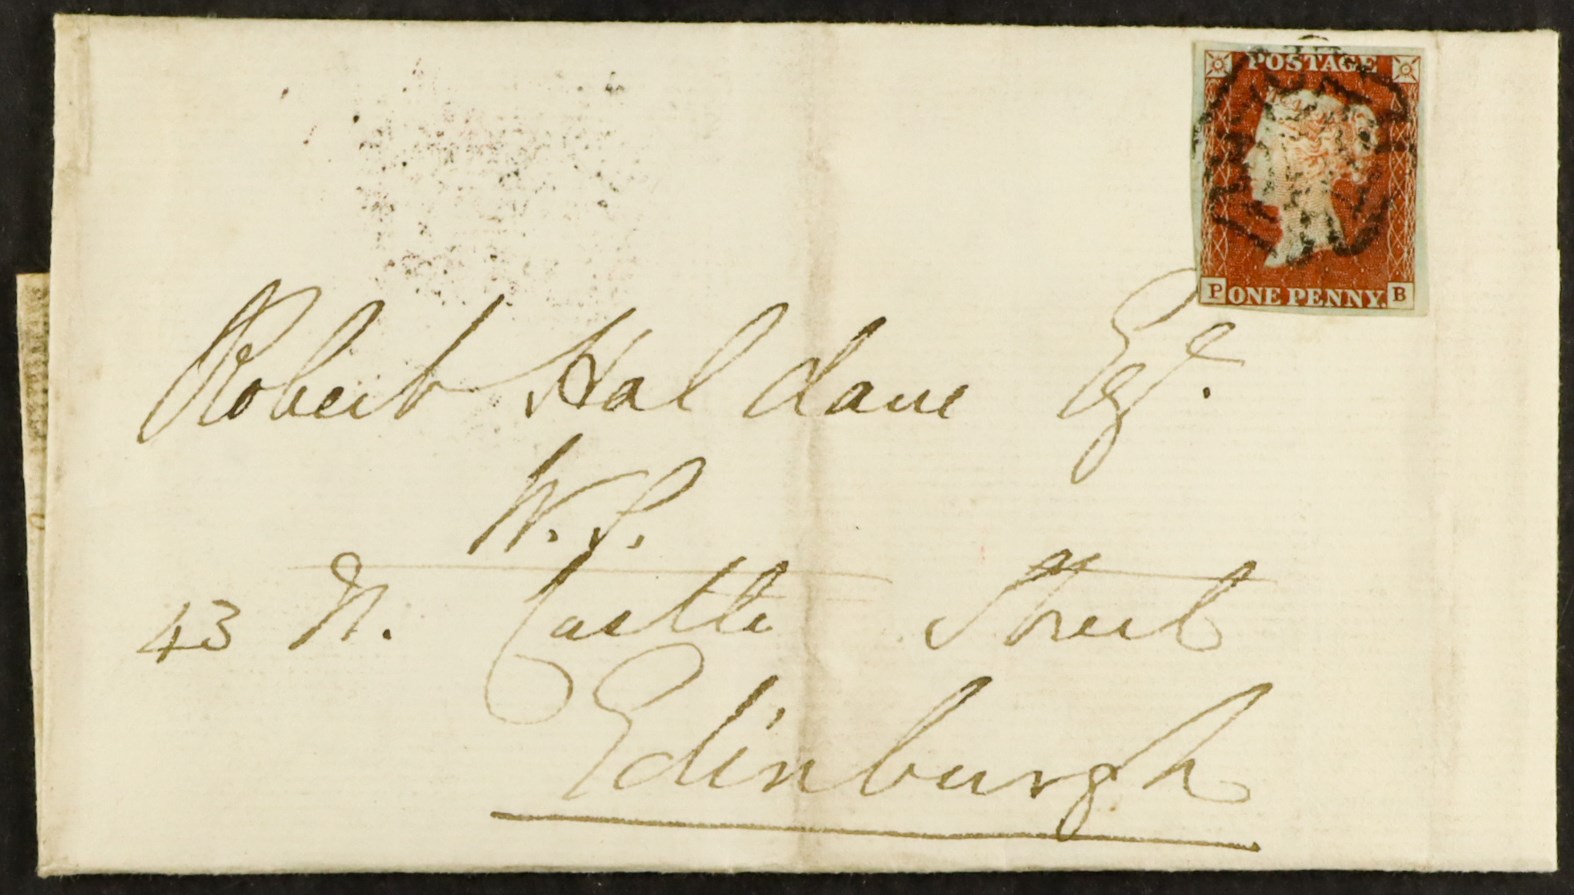 POSTAGE
P ONE PENNY. B
Robert Haldane Esqr.
W.S.
43 N. Castle Street
Edinburgh